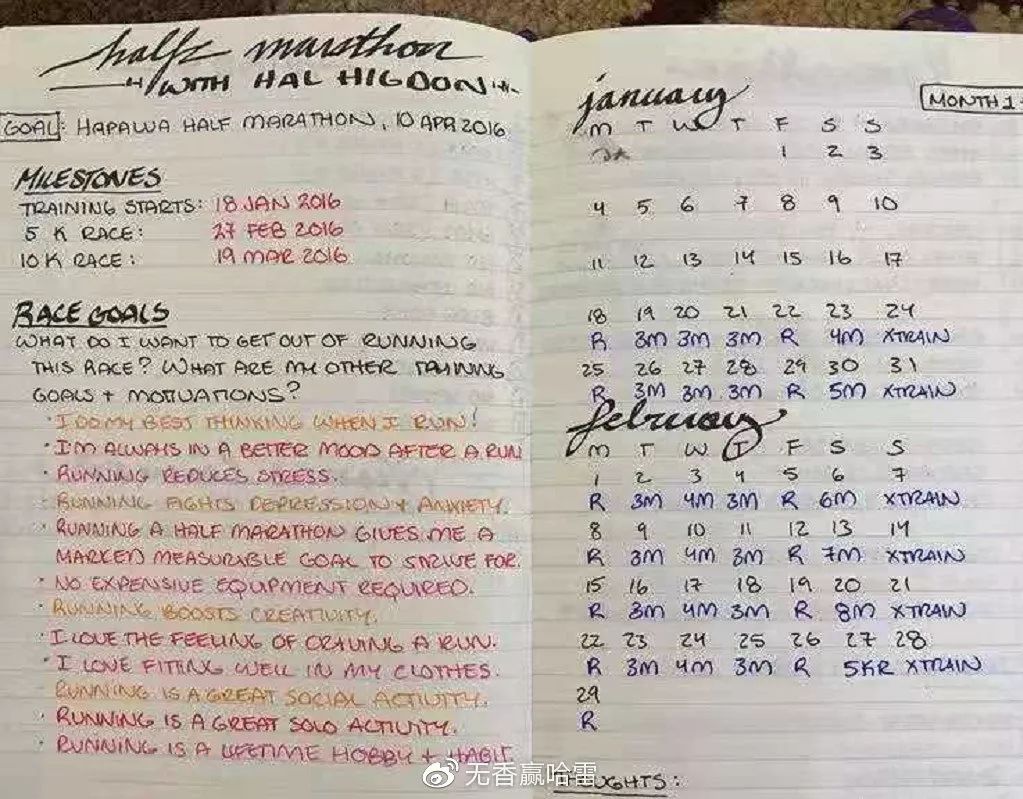 half marathon
WITH HAL HIGDON
GOAL: HAPALUA HALF MARATHON, 10 APR 2016
MILESTONES
TRAINING STARTS: 18 JAN 2016
5 K RACE: 27 FEB 2016
10 K RACE: 19 MAR 2016
RACE GOALS
WHAT DO I WANT TO GET OUT OF RUNNING
THIS RACE? WHAT ARE MY OTHER TRAINING
GOALS + MOTIVATIONS?
· I DO MY BEST THINKING WHEN I RUN!
· I'M ALWAYS IN A BETTER MOOD AFTER A RUN
· RUNNING REDUCES STRESS.
· RUNNING FIGHTS DEPRESSION + ANXIETY.
· RUNNING A HALF MARATHON GIVES ME A
MARKED MEASURABLE GOAL TO STRIVE FOR.
· NO EXPENSIVE EQUIPMENT REQUIRED.
· RUNNING BOOSTS CREATIVITY.
· I LOVE THE FEELING OF CRAVING A RUN.
· I LOVE FITTING WELL IN MY CLOTHES.
· RUNNING IS A GREAT SOCIAL ACTIVITY.
· RUNNING IS A GREAT SOLO ACTIVITY.
· RUNNING IS A LIFETIME HOBBY + HABIT
january
MONTH 1
M T W T F S S
1 2 3
4 5 6 7 8 9 10
11 12 13 14 15 16 17
18 19 20 21 22 23 24
R 3M 3M 3M R 4M XTRAIN
25 26 27 28 29 30 31
R 3M 3M 3M R 5M XTRAIN
february
M T W T F S S
1 2 3 4 5 6 7
R 3M 4M 3M R 6M XTRAIN
8 9 10 11 12 13 14
R 3M 4M 3M R 7M XTRAIN
15 16 17 18 19 20 21
R 3M 4M 3M R 8M XTRAIN
22 23 24 25 26 27 28
R 3M 4M 3M R 5KR XTRAIN
29
R
THOUGHTS:
无香赢哈雷